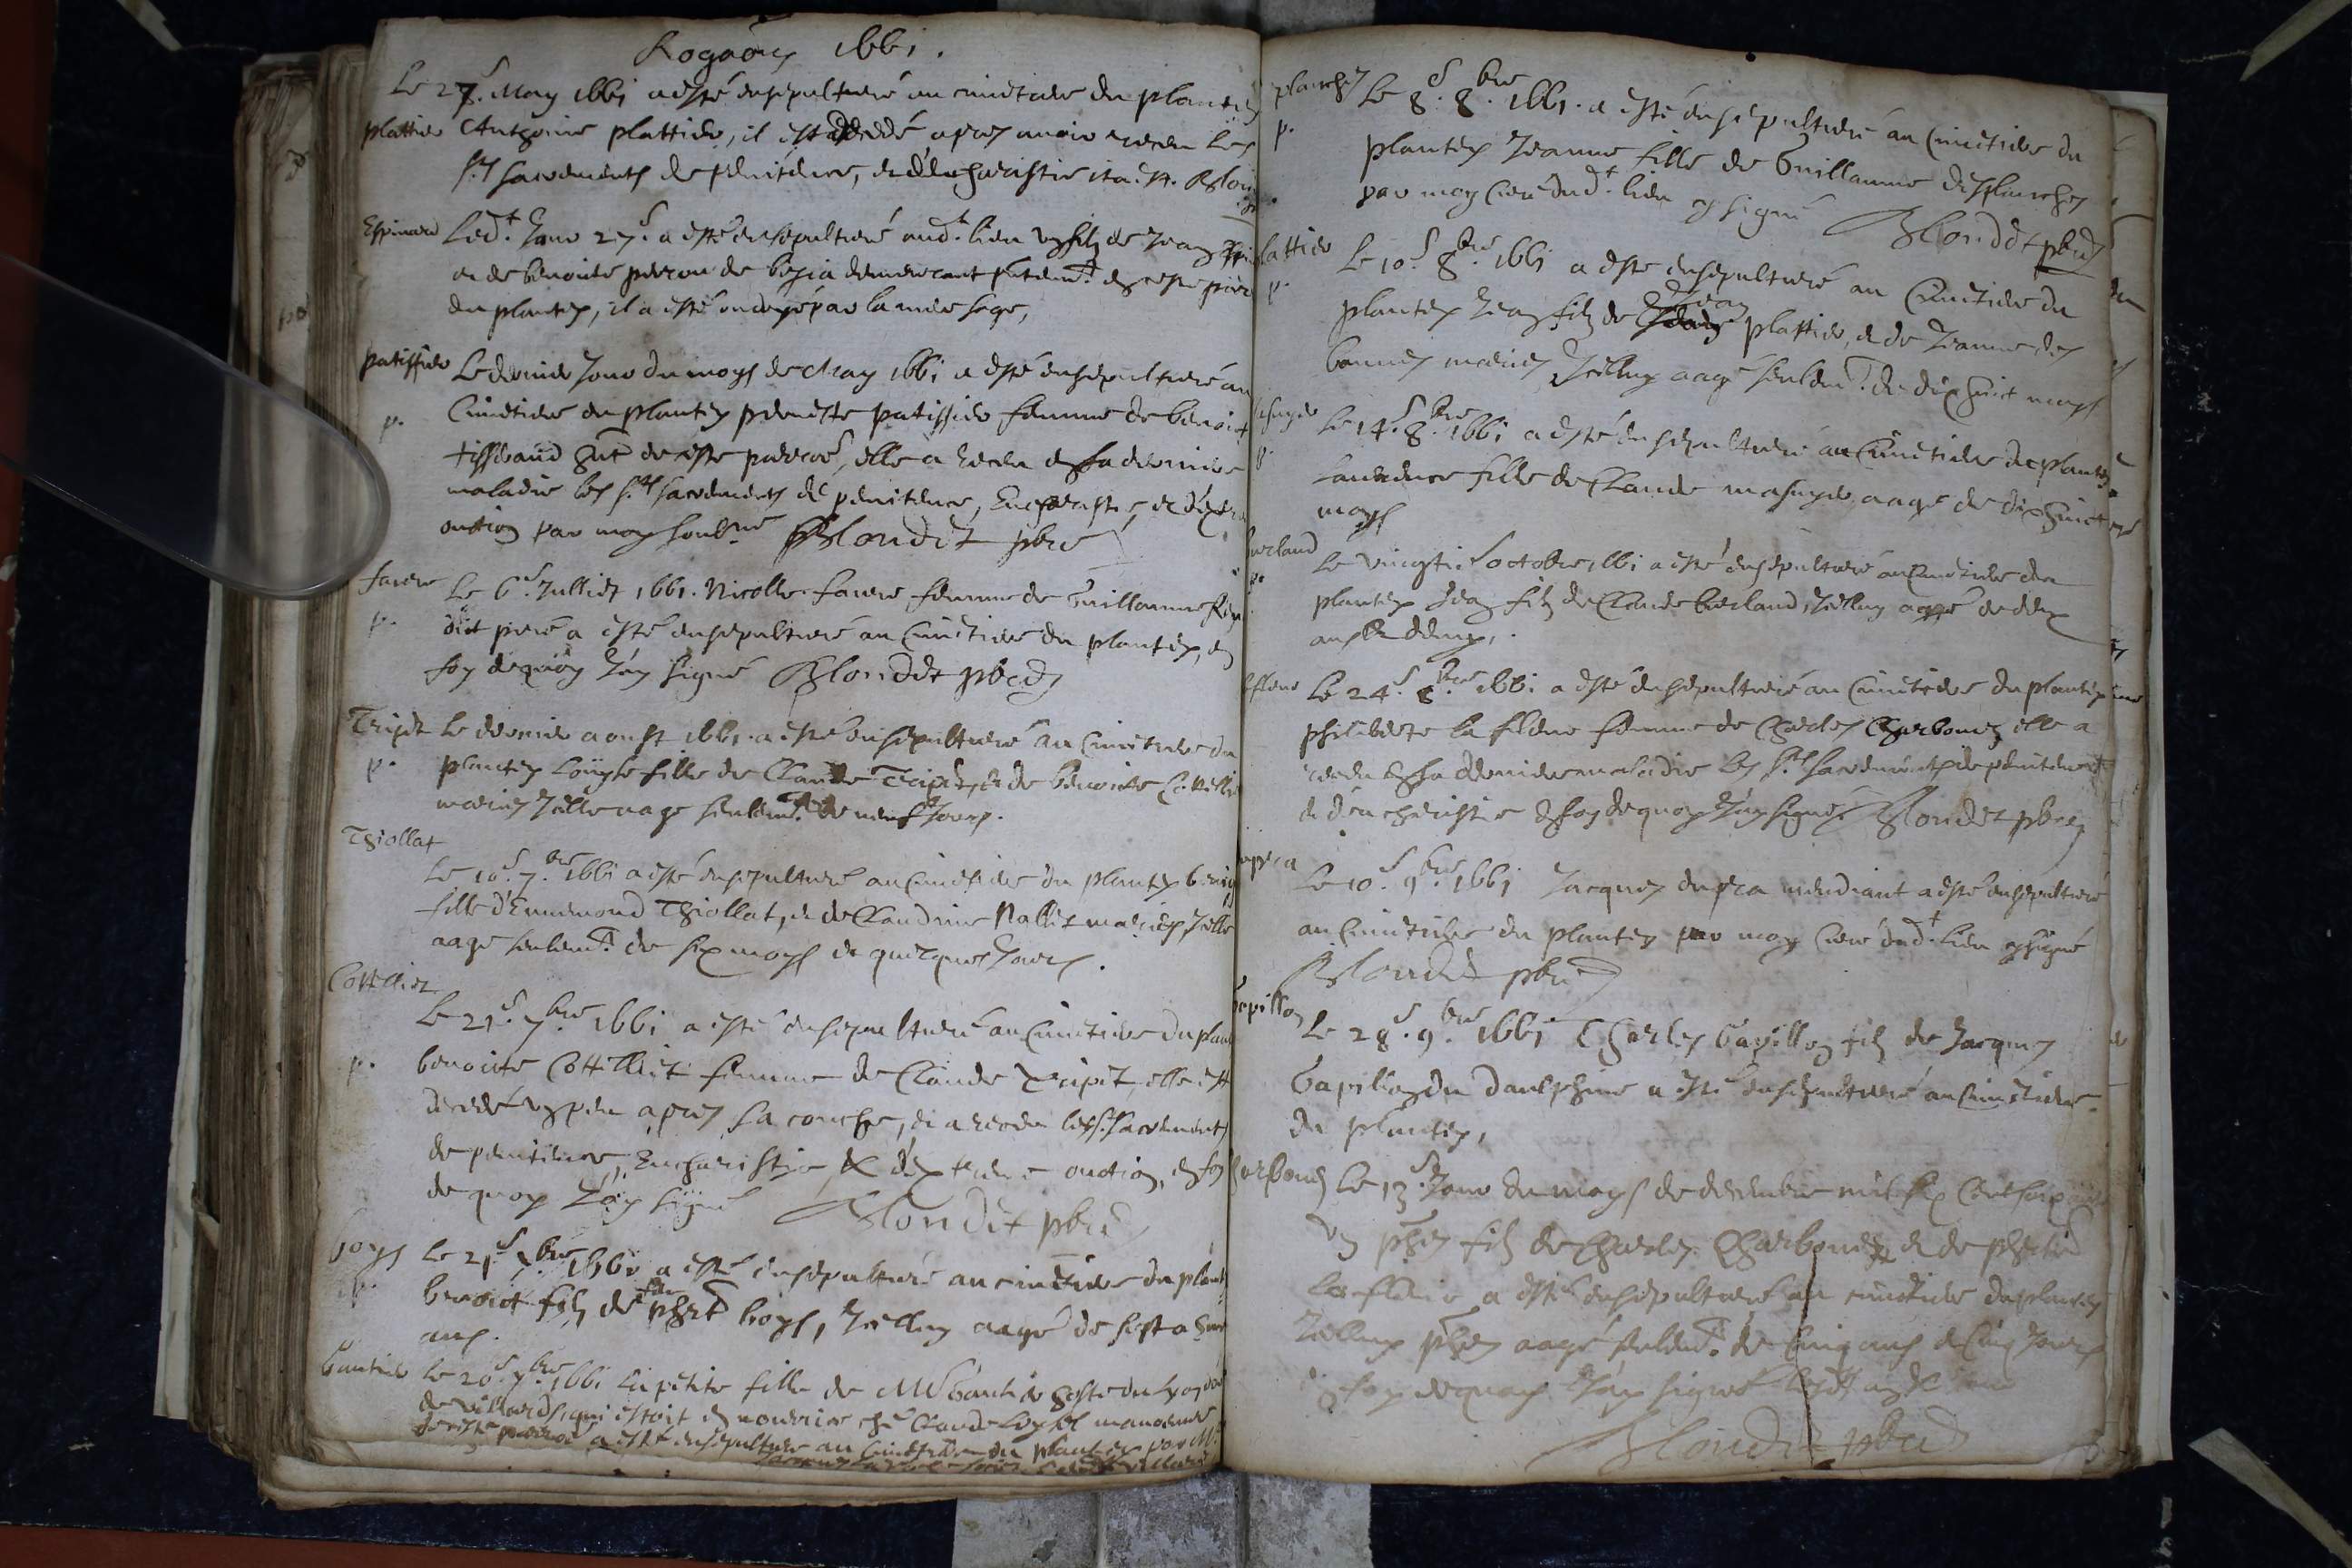 Rogaons 1661.
Le 27e. May 1661 a esté ensepulturé au cimetiere du plantey
plattier Anthoine plattier, il est decedé apres avoir receu les
sts sacrements de penitence, et d'eucharistie ita est. Blon
Espinard Ledt. Jour 27e. a esté ensepulturé audt. lieu un filz de Jean
et de benoite perron de demeurant en ceste
du plantey, il a esté ondoyé par la mere sage,
patissier Le dernier Jour du moys de May 1661 a esté ensepulturé au
p. Cimetiere du plantey pernette patissier femme de benoit
tisserand de ceste parroe, elle a receu en sa derniere
maladie les sts sacrements de penitence, Eucharistie, et d'extre
onction par moy soubne Blondet pbre
favre Le 6e. Julliet 1661. Nicolle favre femme de Guillaume
p. dict a esté ensepulturé au Cimetiere du plantey, en
foy dequoy J'ay signé Blondet pbre
Tripet Le dernier aoust 1661. a esté ensepulturé au Cimetiere du
p. plantey Louyse fille de Claude Tripet, et de benoite Cottellie
mariez Icelle aage seulemt. de neuf Jours.
Thiollat
Le 10e. 7bre. 1661 a esté ensepulturé au Cimetiere du plantey
fille d'Ennemond Thiollat, et de Claudine Nallet mariez Icelle
aage seulemt. de six moys et quelques Jours.
Cottelliet
Le 21e. 7bre 1661 a esté ensepulturé au Cimetiere du plant
p. benoite Cottelliet femme de Claude Tripet, elle est
decedé un peu apres sa couche, et a receu les s. sacrements
de penitence, Eucharistie, & d'extreme onction, en foy
de quoy J'ay signé Blondet pbre
boys Le 21e 7bre 1661 a esté ensepulturé au cimetiere du plant
p. benoict filz de feu phert boys, Icelluy aagé de sept a huict
ans.
Gautier Le 26e 7bre 1661 la petite fille de Mr Gautier hoste du Lyon
de villards, qui estoit en nourrice ché Claude
de ceste parroe a esté ensepulturé au Cimetiere du plantey par Mr
planches Le 8e. 8bre. 1661. a esté ensepulturé au Cimetiere du
p. plantey Jeanne fille de Guillaume desplanches
par moy curé dudt. lieu cy signé Blondet pbre
plattier Le 10e 8bre. 1661 a esté ensepulturé au Cimetiere du
p. plantey Jean filz de Jean plattier, et de Jeanne des
bonnes mariez Icelluy aagé seulemt. de dix huict moys
Le 14e. 8bre. 1661 a esté ensepulturé au Cimetiere du plantey
p. Laurence fille de Claude masuyer, aagé de dix huict
moys
berland Le vingtie. octobre 1661 a esté ensepulturé au Cimetiere du
p. plantey Jean filz de Claude berland, Icelluy aagé de deux
ans
Le 24e. 8bre. 1661 a esté ensepulturé au Cimetiere du plantey
philiberte la fleur femme de Charles Charbonez elle a
receu en sa derniere maladie les sts sacrements de penitence
et d'eucharistie en foy dequoy J'ay signé Blondet pbre
Le 10e. 9bre 1661 Jacques dupra mendiant a esté ensepulturé
au Cimetiere du plantey par moy Curé dudt. lieu cy signé
Blondet pbre
Gapillon Le 28e. 9bre 1661 Charles Gapillon filz de Jacques
Gapillon du daulphine a esté ensepulturé au Cimetiere
du plantey,
Charbonez Le 13e. Jour du moys de decembre mil six Cent soixante
un phert filz de Charles Charbonez et de pherte
la fleur a esté ensepulturé au cimetiere du plantey
Icelluy phert aagé seulemt. de Cinq ans et Cinq Jours
en foy dequoy J'ay signé
Blondet pbre